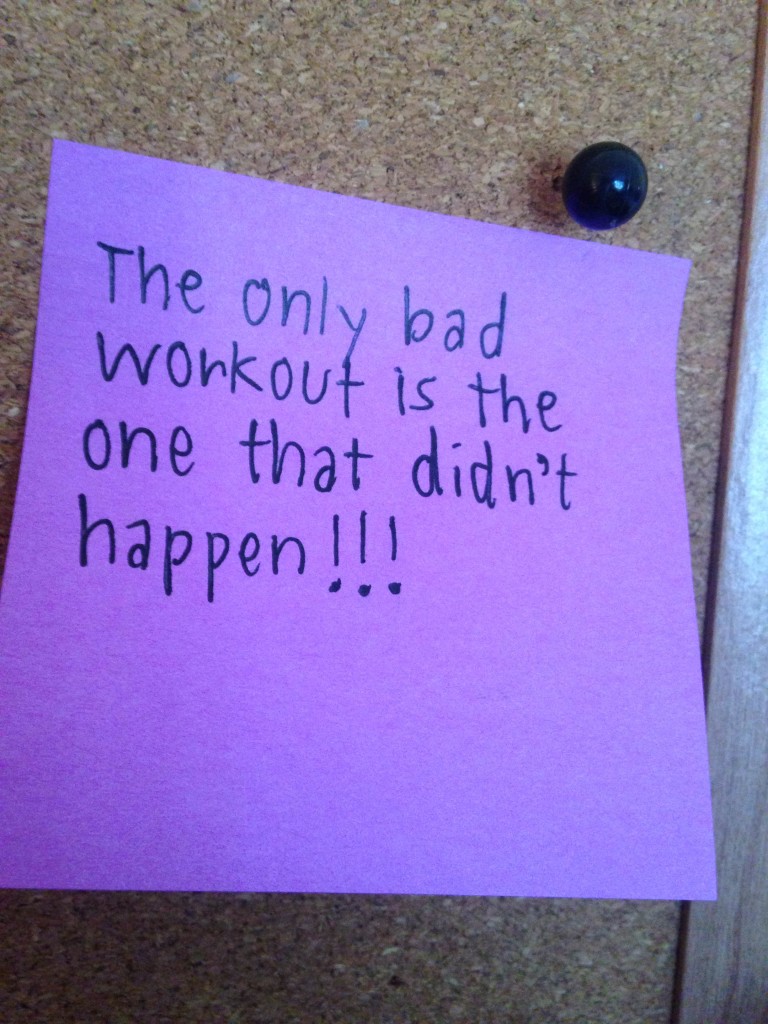 The only bad
workout is the
one that didn't
happen!!!